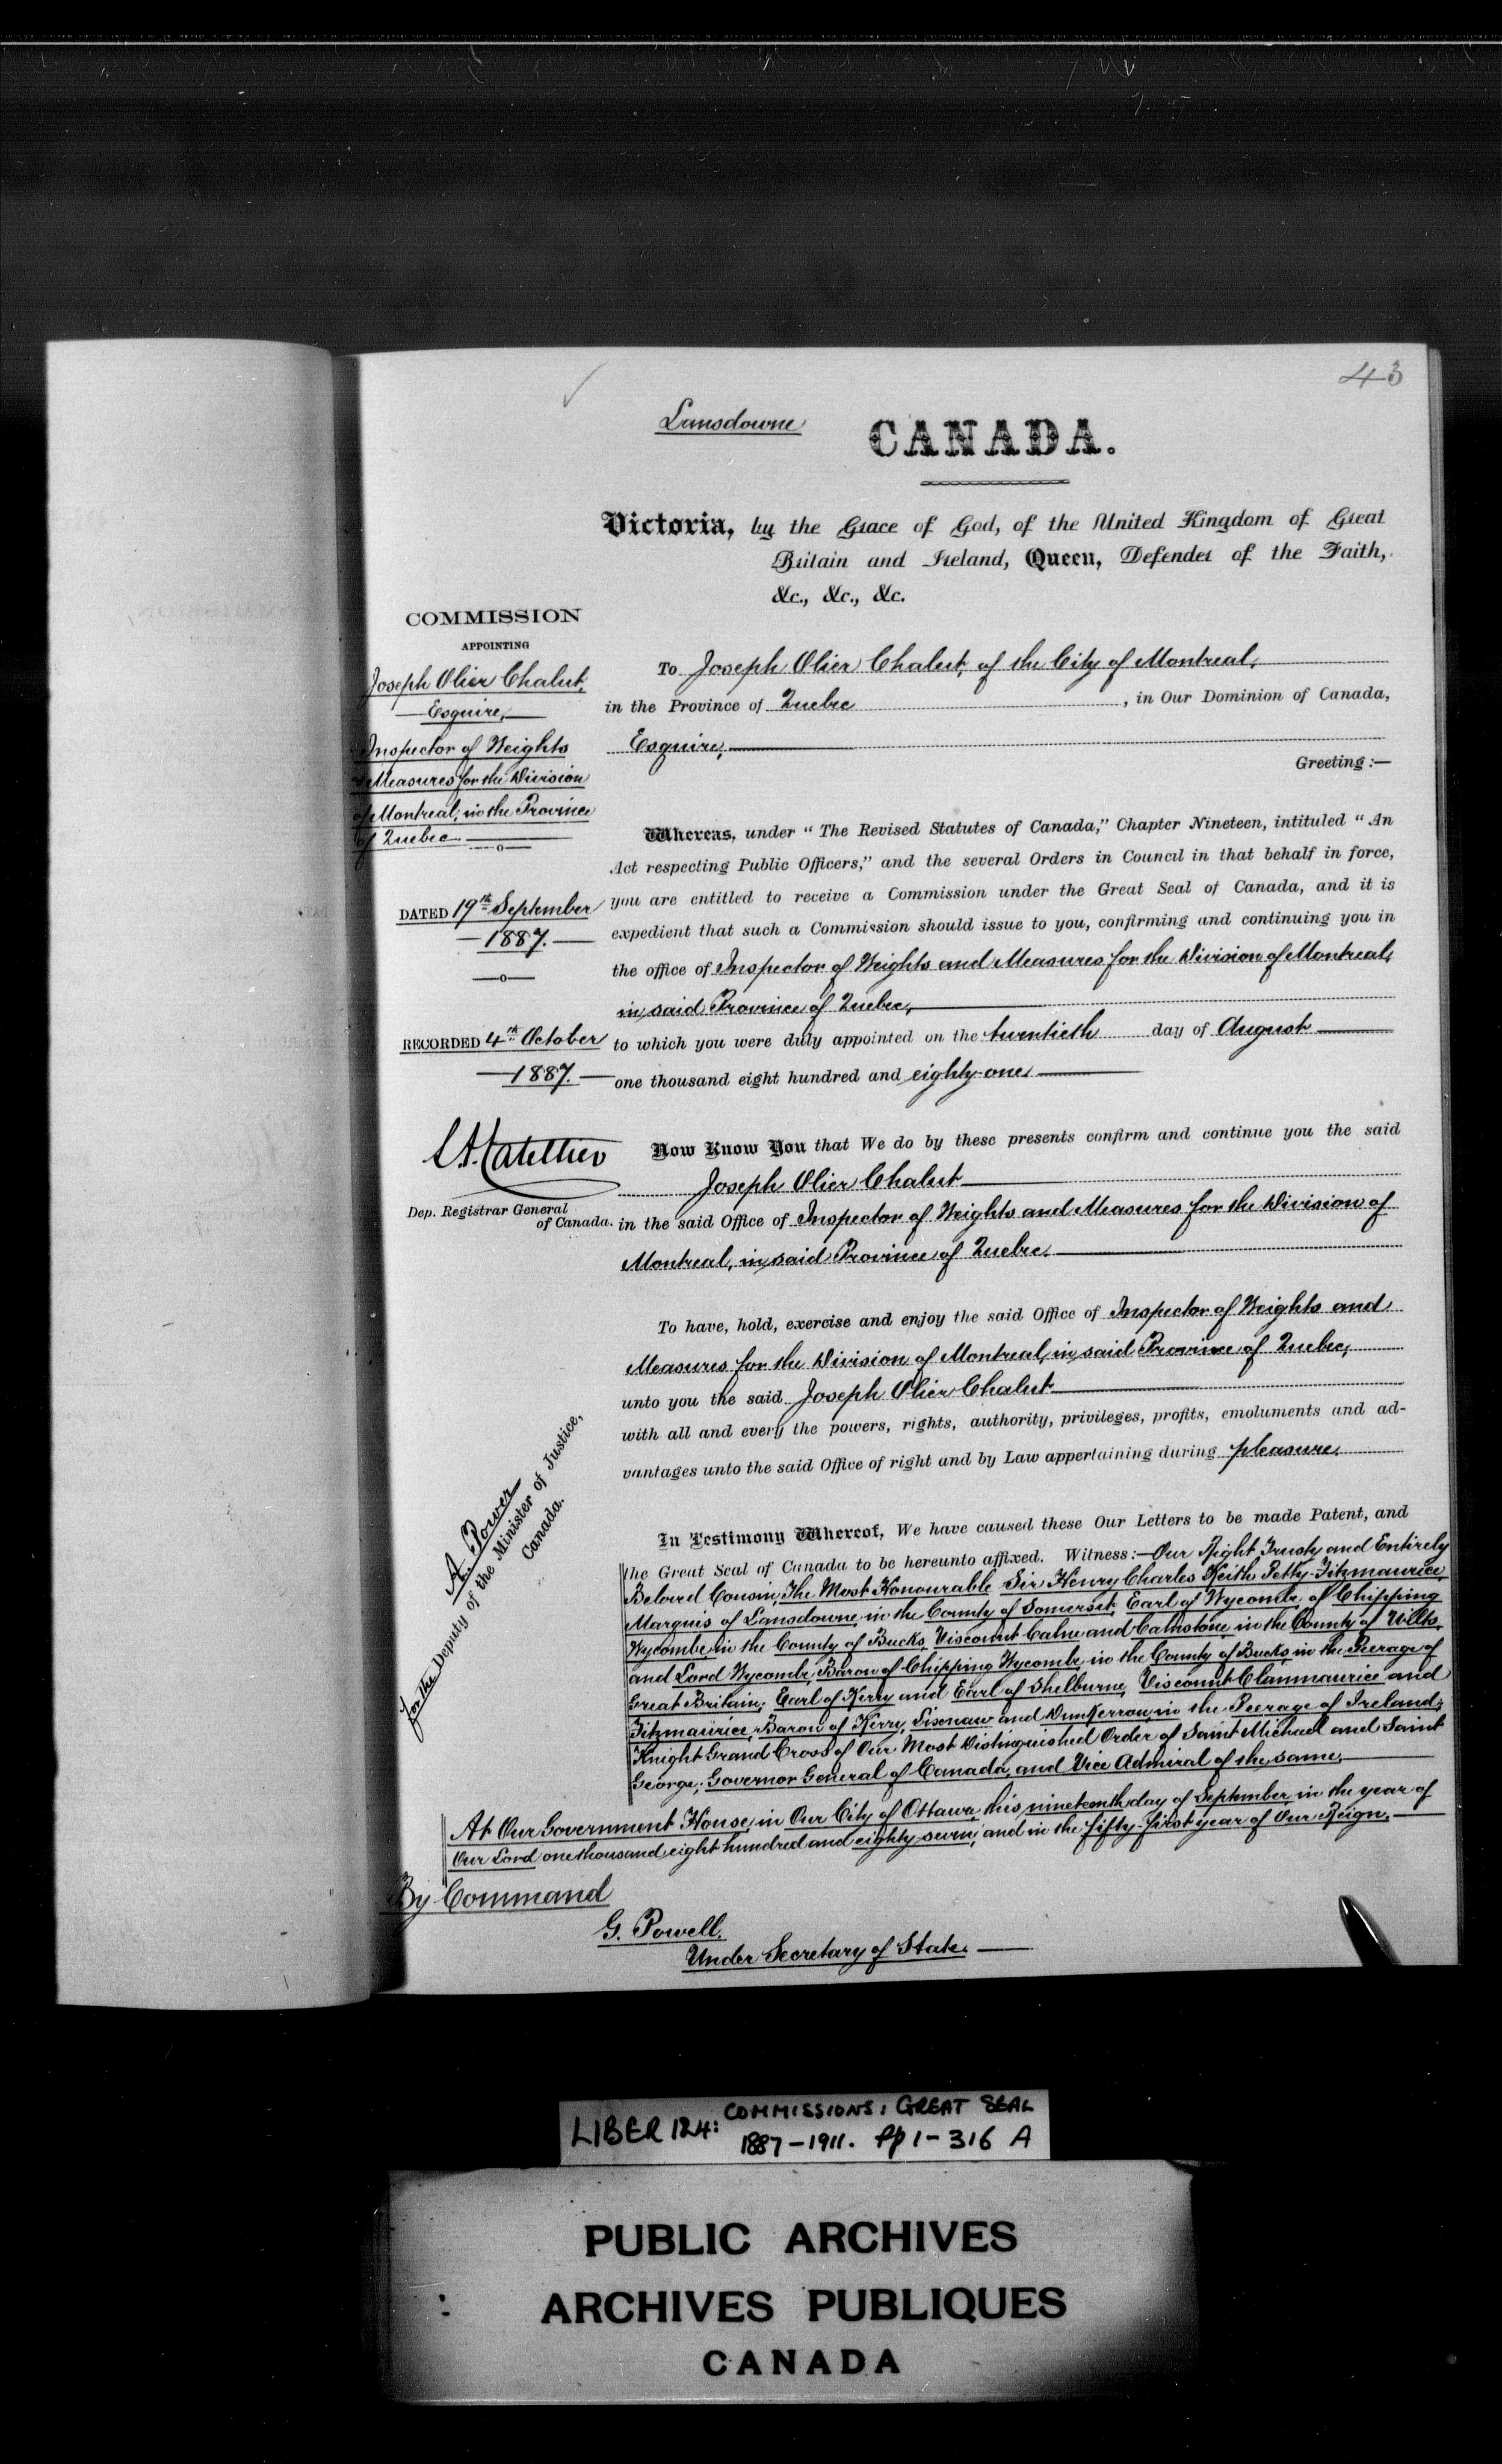 43
Lansdowne
CANADA.
Victoria, by the Grace of God, of the United Kingdom of Great
Britain and Ireland, Queen, Defender of the Faith,
&c., &c., &c.
COMMISSION
APPOINTING
Joseph Olier Chalut,
Esquire,
Inspector of Weights
& Measures for the Division
of Montreal, in the Province
of Quebec.
DATED 19th September
1887.
RECORDED 4th October
1887.
Dep. Registrar General
of Canada.
A. Power
for the Deputy of the Minister of Justice,
Canada.
To Joseph Olier Chalut, of the City of Montreal,
in the Province of Quebec, in Our Dominion of Canada,
Esquire,
Greeting:—
Whereas, under “The Revised Statutes of Canada,” Chapter Nineteen, intituled “An
Act respecting Public Officers,” and the several Orders in Council in that behalf in force,
you are entitled to receive a Commission under the Great Seal of Canada, and it is
expedient that such a Commission should issue to you, confirming and continuing you in
the office of Inspector of Weights and Measures for the Division of Montreal,
in said Province of Quebec,
to which you were duly appointed on the twentieth day of August
one thousand eight hundred and eighty-one.
Now Know You that We do by these presents confirm and continue you the said
Joseph Olier Chalut
in the said Office of Inspector of Weights and Measures for the Division of
Montreal, in said Province of Quebec.
To have, hold, exercise and enjoy the said Office of Inspector of Weights and
Measures for the Division of Montreal, in said Province of Quebec,
unto you the said Joseph Olier Chalut
with all and every the powers, rights, authority, privileges, profits, emoluments and ad-
vantages unto the said Office of right and by Law appertaining during pleasure.
In Testimony Whereof, We have caused these Our Letters to be made Patent, and
the Great Seal of Canada to be hereunto affixed. Witness:—Our Right Trusty and Entirely
Beloved Cousin, The Most Honourable Sir Henry Charles Keith Petty-Fitzmaurice
Marquis of Lansdowne, in the County of Somerset, Earl of Wycombe, of Chipping
Wycombe, in the County of Bucks, Viscount Calne and Calnstone, in the County of Wilts,
and Lord Wycombe, Baron of Chipping Wycombe, in the County of Bucks, in the Peerage of
Great Britain; Earl of Kerry and Earl of Shelburne, Viscount Clanmaurice and
Fitzmaurice, Baron of Kerry, Lixnaw and Dunkerron, in the Peerage of Ireland;
Knight Grand Cross of Our Most Distinguished Order of Saint Michael and Saint
George; Governor General of Canada, and Vice Admiral of the same.
At Our Government House, in Our City of Ottawa, this nineteenth day of September, in the year of
Our Lord one thousand eight hundred and eighty-seven, and in the fifty-first year of Our Reign.
By Command
G. Powell,
Under Secretary of State.
LIBER 124: COMMISSIONS: GREAT SEAL
1887-1911. pp 1-316 A
PUBLIC ARCHIVES
ARCHIVES PUBLIQUES
CANADA